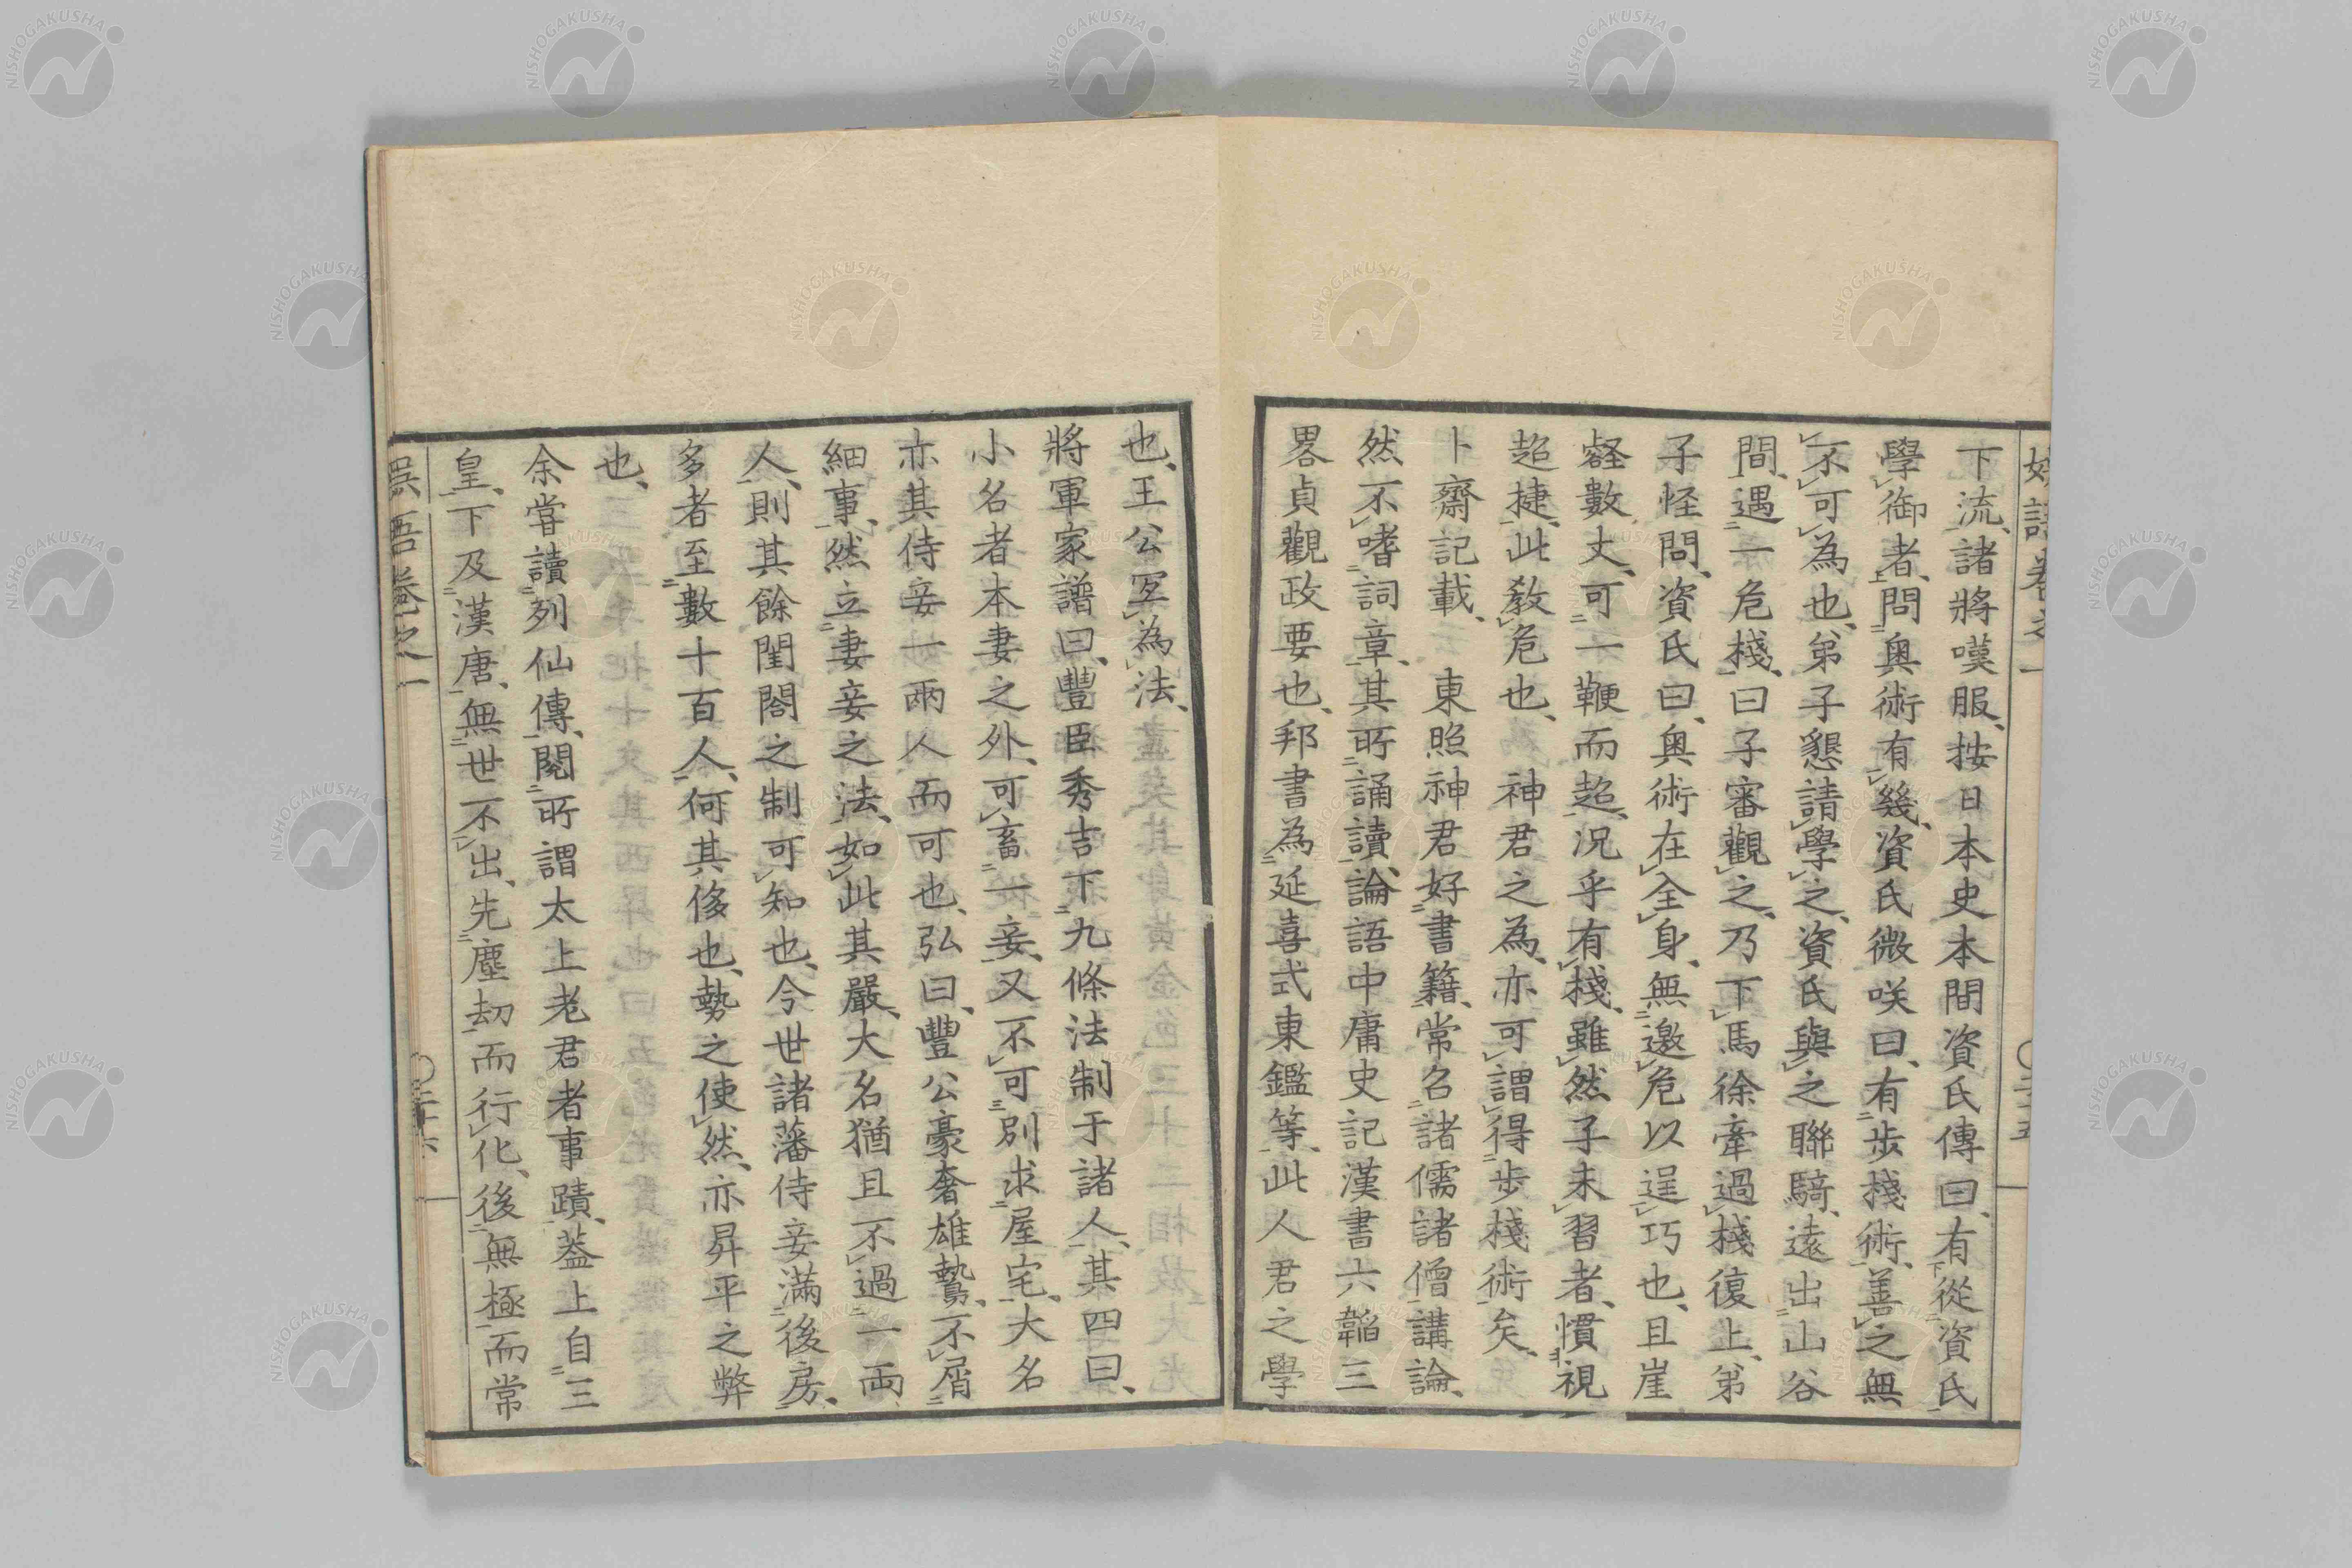 下流、諸將嘆服、按日本史本間資氏傳曰、有從資氏
學御者、問奥術有幾、資氏微咲曰、有歩棧術、善之無
不可為也、弟子懇請學之、資氏與之聯騎、遠出山谷
間、遇一危棧、曰子審觀之、乃下馬徐牽過棧復上、弟
子怪問、資氏曰、奥術在全身、無邀危以逞巧也、且崖
谿數丈、可一鞭而超、況乎有棧、雖然子未習者、慣視
超捷、此教危也、神君之為、亦可謂得歩棧術矣、
卜齋記載、東照神君好書籍、常召諸儒諸僧講論、
然不嗜詞章、其所誦讀、論語中庸史記漢書六韜三
畧貞觀政要也、邦書為延喜式東鑑等、此人君之學
也、王公冝為法、
將軍家譜曰、豐臣秀吉下九條法制于諸人、其四曰、
小名者本妻之外、可畜一妾、又不可別求屋宅、大名
亦其侍妾一兩人而可也、弘曰、豐公豪奢雄鷙、不屑
細事、然立妻妾之法、如此其嚴、大名猶且不過一両
人、則其餘閨閤之制可知也、今世諸藩侍妾滿後房、
多者至數十百人、何其侈也、勢之使然、亦昇平之弊
也、
余嘗讀列仙傳、閲所謂太上老君者事蹟、葢上自三
皇、下及漢唐、無世不出、先塵劫而行化、後無極而常
卷之一
〇二十六